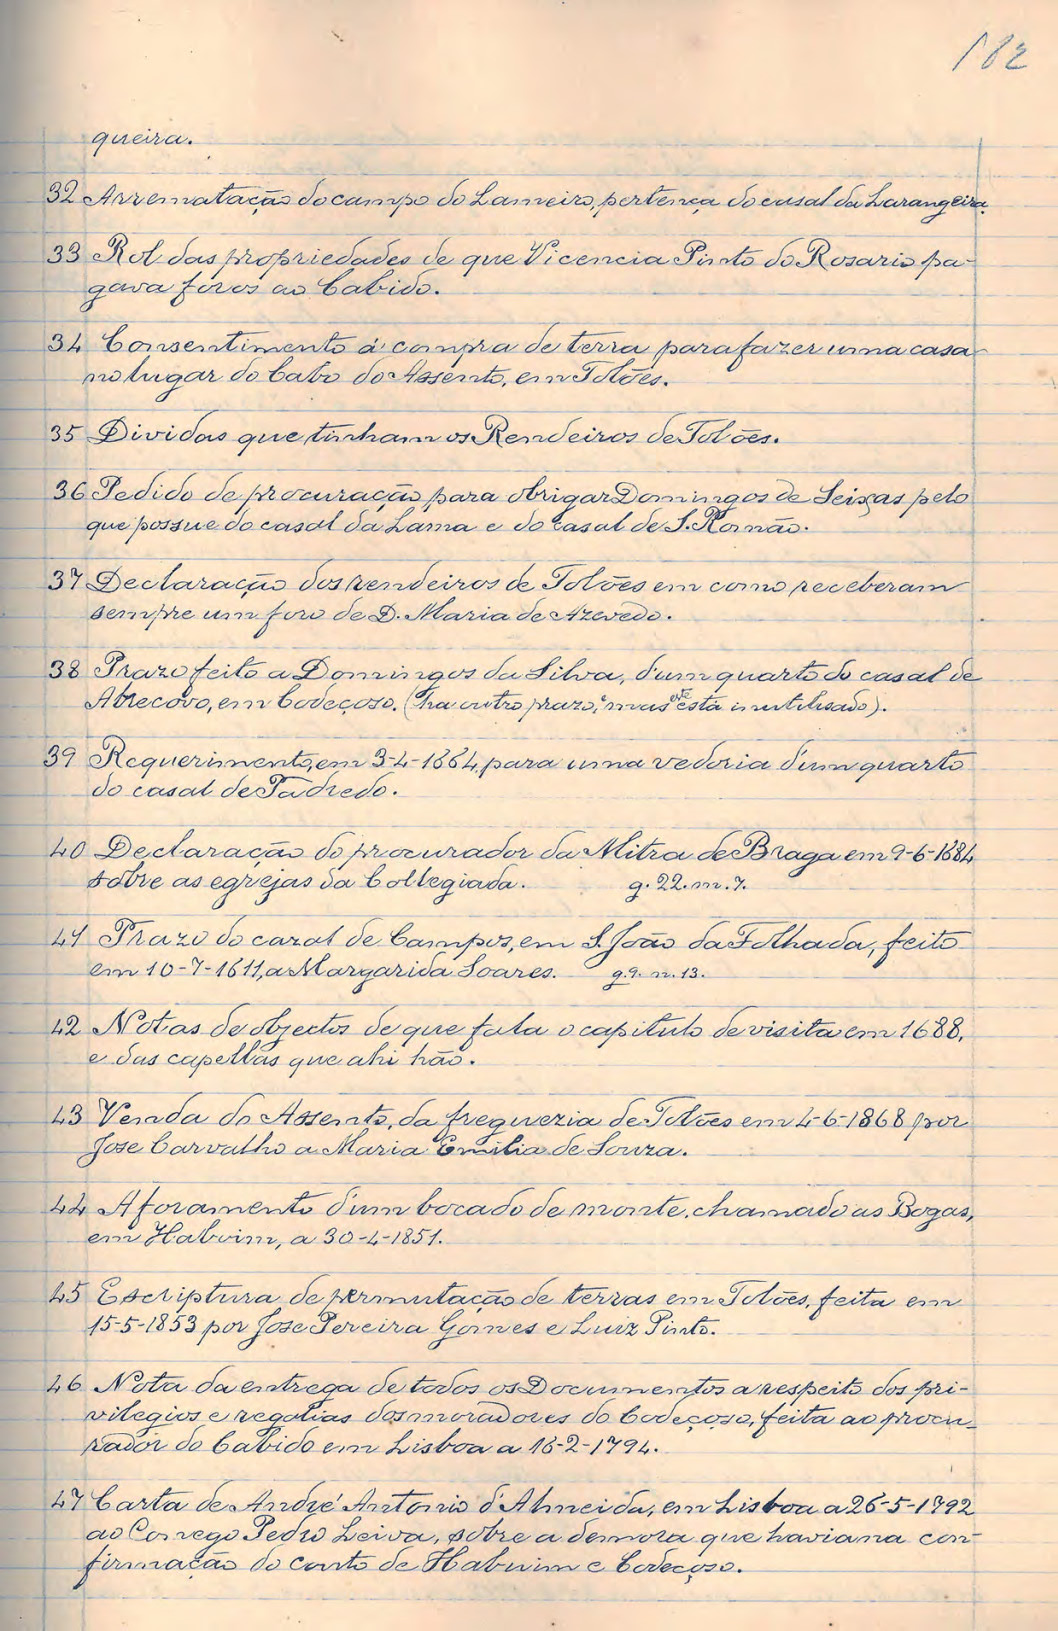 182
queira.
32 Arrematação do campo do Lameiro, pertença do casal da Larangeira.
33 Rol das propriedades de que Vicencia Pinto do Rosario pa-
gava foros ao Cabido.
34 Consentimento á compra de terra para fazer uma casa
no lugar do Cabo do Assento, em Tolões.
35 Dividas que tinham os Rendeiros de Tolões.
36 Pedido de procuração para obrigar Domingos de Seixas pelo
que possue do casal da Lama e do casal de S. Romão.
37 Declaração dos rendeiros de Tolões em como receberam
sempre um foro de D. Maria de Azevedo.
38 Prazo feito a Domingos da Silva, d'um quarto do casal de
Abecovo, em Codeçoso. (ha outro prazo, mas este está inutilisado).
39 Requerimento, em 3-4-1664, para uma vedoria d'um quarto
do casal de Padredo.
40 Declaração do procurador da Mitra de Braga em 9-6-1684
sobre as egrejas da Collegiada. g. 22. m. 7.
41 Prazo do cazal de Campos, em S. João da Folhada, feito
em 10-7-1611, a Margarida Soares. g. 9. n. 13.
42 Notas de objectos de que fala o capitulo de visita em 1688,
e das capellas que ahi hão.
43 Venda do Assento, da freguezia de Tolões em 4-6-1868 por
Jose Carvalho a Maria Emilia de Souza.
44 Aforamento d'um bocado de monte, chamado as Bogas,
em Habuim, a 30-4-1851.
45 Escriptura de permutação de terras em Tolões, feita em
15-5-1853 por Jose Pereira Gomes e Luiz Pinto.
46 Nota da entrega de todos os Documentos a respeito dos pri-
vilegios e regalias dos moradores do Codeçoso, feita ao procu-
rador do Cabido em Lisboa a 16-2-1794.
47 Carta de André Antonio d'Almeida, em Lisboa a 26-5-1792
ao Conego Pedro Leiva, sobre a demora que havia na con-
firmação do couto de Habuim e Codeçoso.